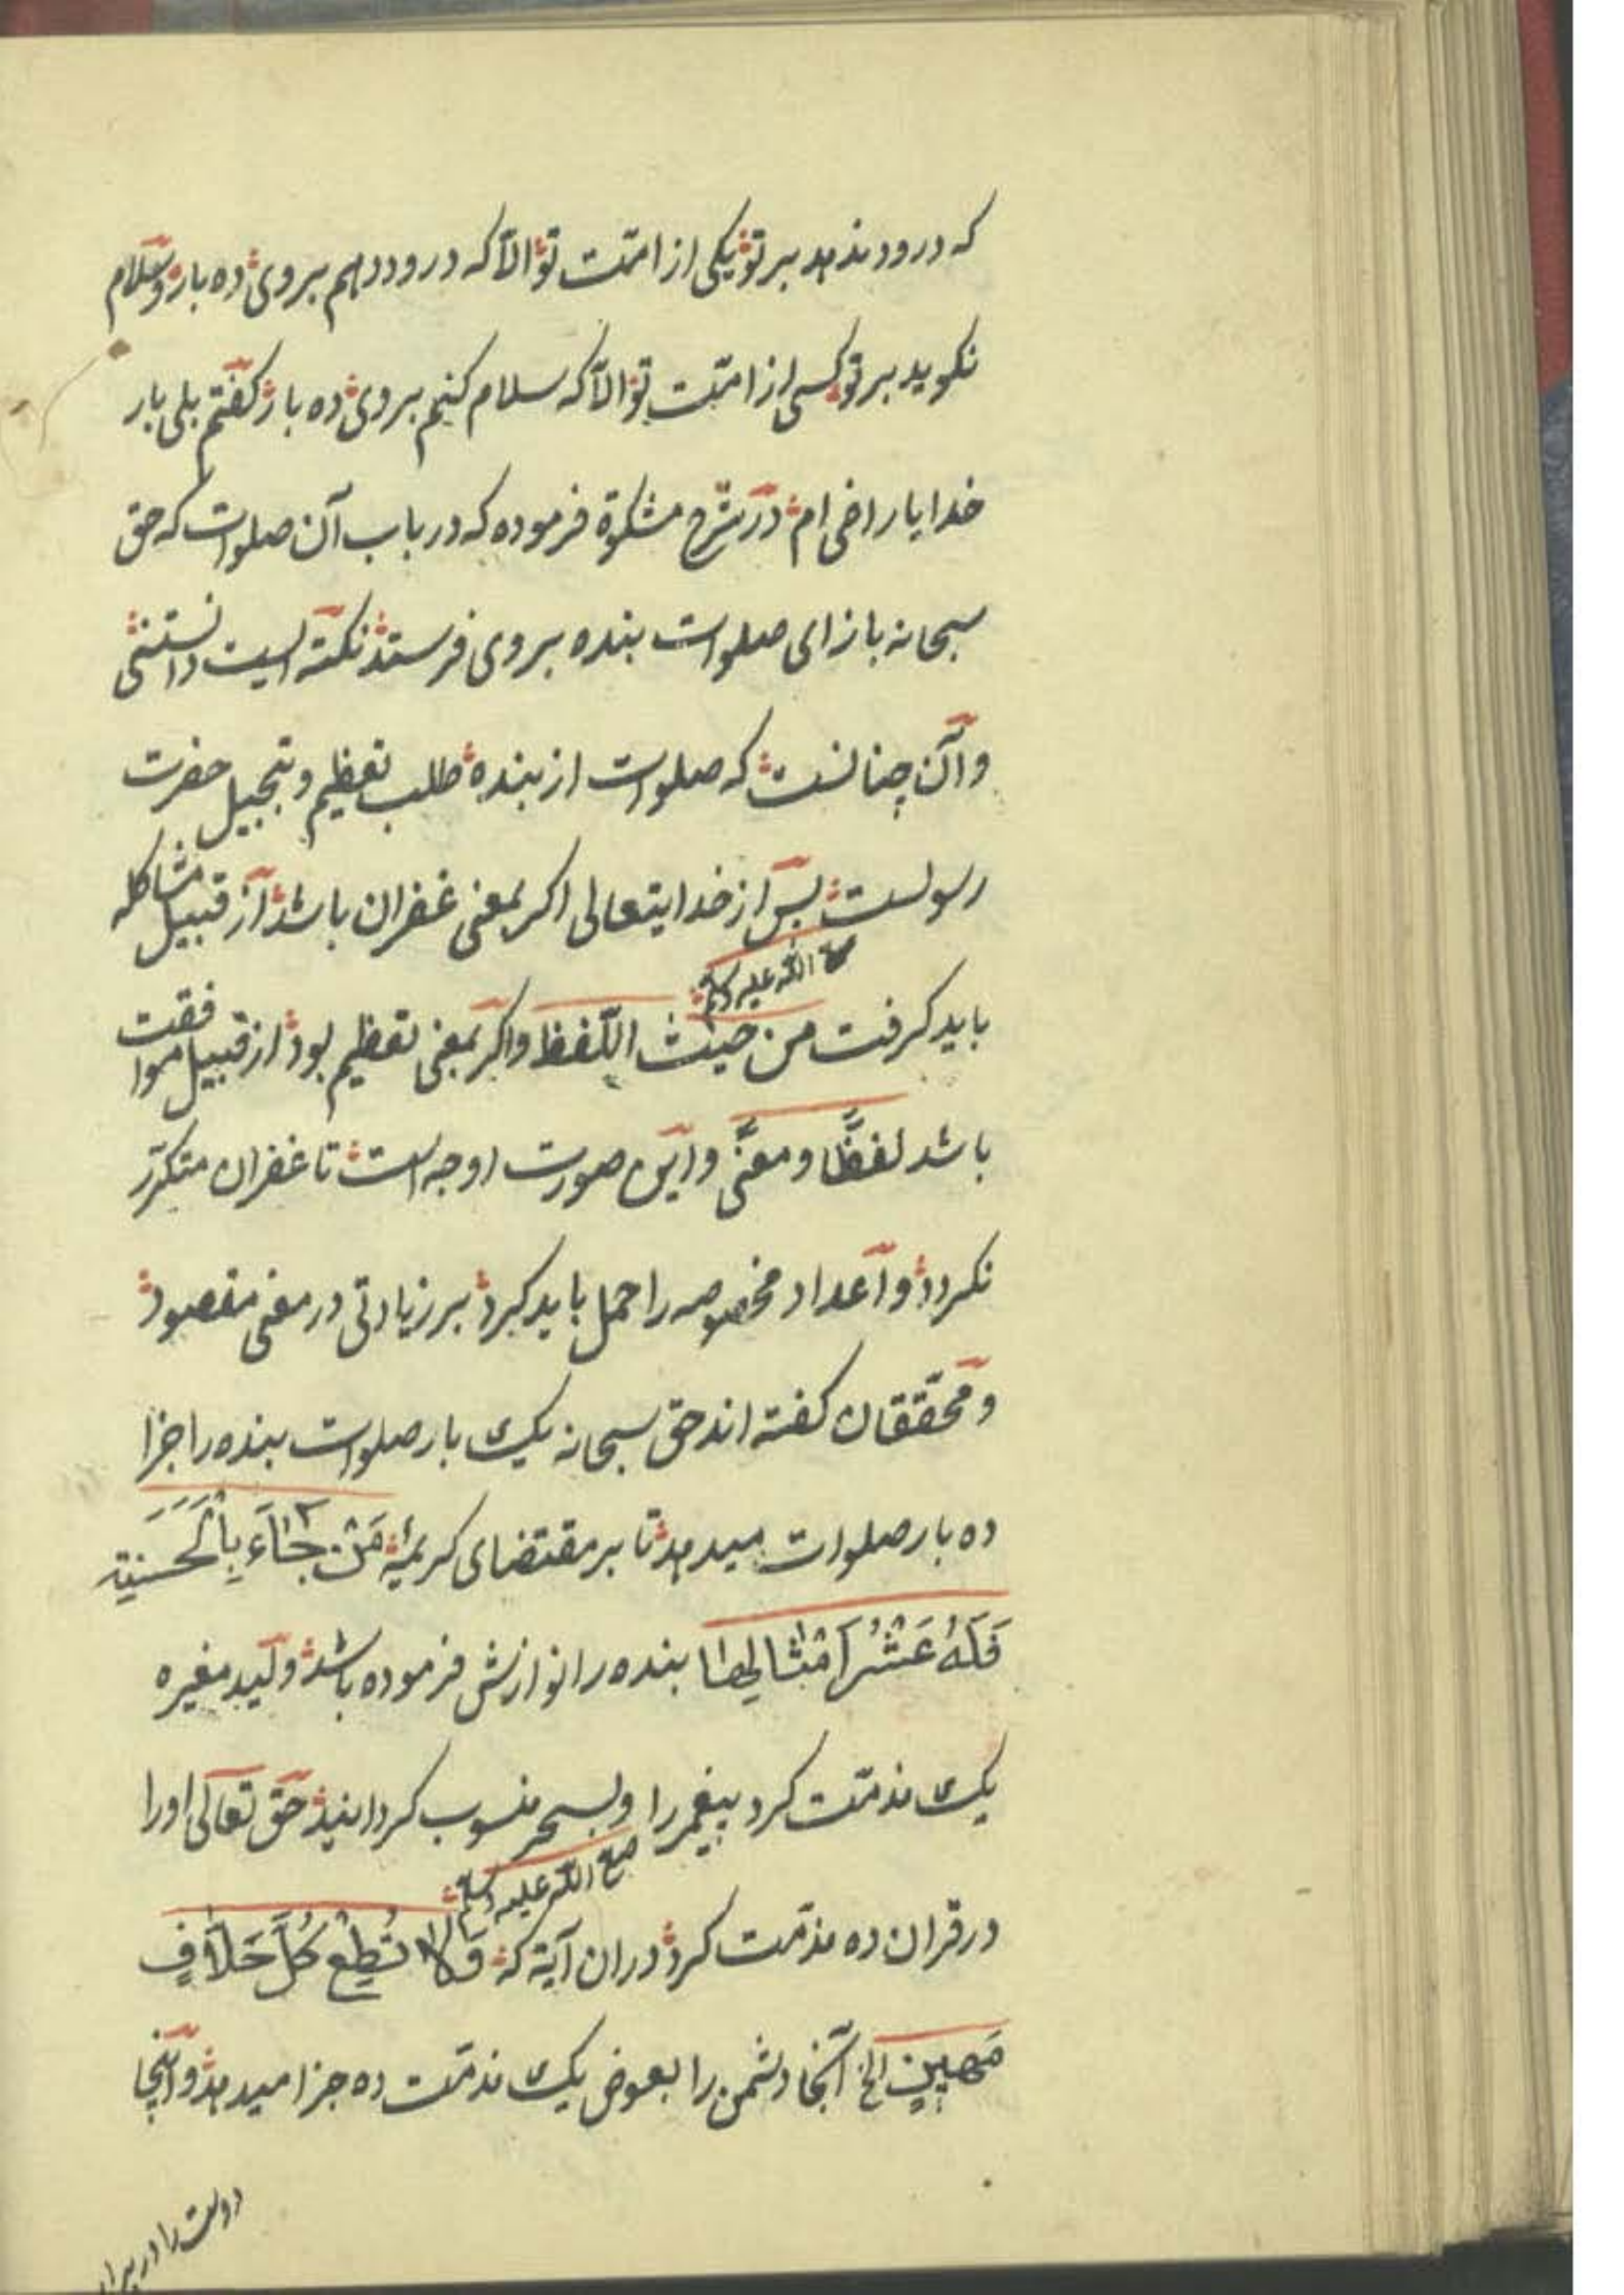 که درود ندهد بر تو یکی از امّت تو الّا که درود دهم بر وی ده بار و سلام
نکوید بر تو کسی از امّت تو الّا که سلام کنم بر وی ده بار کفتم بلی بار
خدایا راضی ام در شرح مشکوة فرموده که در باب آن صلوات که حق
سبحانه بازای صلوات بنده بر وی فرستد نکته ایست دانستنی
و آن چنانست که صلوات از بنده طلب تعظیم و تبجیل حضرت
رسولست پس از خدایتعالی اکر بمعنی غفران باشد از قبیل مشاکله
صلی الله علیه وسلم
باید کرفت من حیث اللّفظ و اکر بمعنی تعظیم بود از قبیل موافقت
باشد لفظًا و معنًی و این صورت اوجه است تا غفران متکرّر
نکردد و اعداد مخصوصه را حمل باید کرد بر زیادتی در معنی مقصود
و محقّقان کفته اند حق سبحانه یک بار صلوات بنده را جزا
ده بار صلوات میدهد تا بر مقتضای کریمهٔ مَنْ جَآءَ بِالْحَسَنَةِ
فَلَهُ عَشْرُ اَمْثَالِهَا بنده را نوازش فرموده باشد ولید مغیره
یک مذمّت کرد پیغمبر را و بسحر منسوب کردانید حق تعالی او را
صلی الله علیه وسلم
در قران ده مذمّت کرد در ان آیة که فَلَا تُطِعْ كُلَّ حَلَّافٍ
مَهِينٍ الخ آنجا دشمن را بعوض یک مذمّت ده جزا میدهد و اینجا
دوست را در برابر